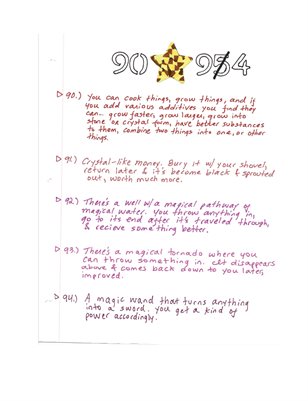 90 954
▷ 90.) You can cook things, grow things, and if
you add various additives you find they
can... grow faster, grow larger, grow into
stone or crystal form, have better substances
to them, combine two things into one, or other
things.
▷ 91.) Crystal-like money. Bury it w/ your shovel,
return later & it's become black & sprouted
out, worth much more.
▷ 92.) There's a well w/a magical pathway of
magical water. You throw anything in,
go to its end after it's traveled through,
& recieve something better.
▷ 93.) There's a magical tornado where you
can throw something in. It disappears
above & comes back down to you later,
improved.
▷ 94.) A magic wand that turns anything
into a sword. You get a kind of
power accordingly.